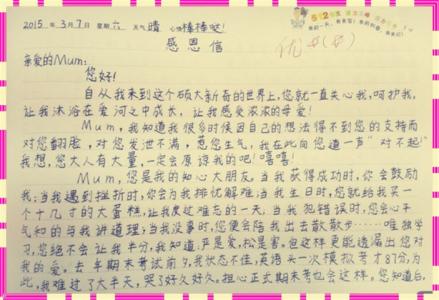 2015 年 3 月 7 日 星期 六 天气 晴 心情 棒棒哒!
感恩信
优
亲爱的Mum:
您好!
自从我来到这个硕大新奇的世界上,您就一直关心我,呵护我,
让我沐浴在爱河之中成长,让我感受浓浓的母爱!
Mum,我知道我很多时候因自己的想法得不到您的支持而
对您翻脸,对您发泄不满,惹您生气,我在此向您道一声“对不起!”
我想,您大人有大量,一定会原谅我的吧!嘻嘻!
Mum,您是我的知心大朋友,当我获得成功时,你会鼓励
我;当我遇到挫折时,你会为我排忧解难;当我生日时,您就给我买一
个十几寸的大蛋糕,让我度过难忘的一天,当我犯错误时,您会心平
气和的与我讲道理;当我没事时,您便会陪我出去散散步……唯独学
习,您绝不会让我半分,我知道:严是爱,松是害,但这样更能透漏出您对
我的爱。去年期末考试前夕,我状态不佳,英语头一次模拟考才87分,为
此,我难过了大半天,哭了好久好久。担心正式期末考也会这样。您知道后,